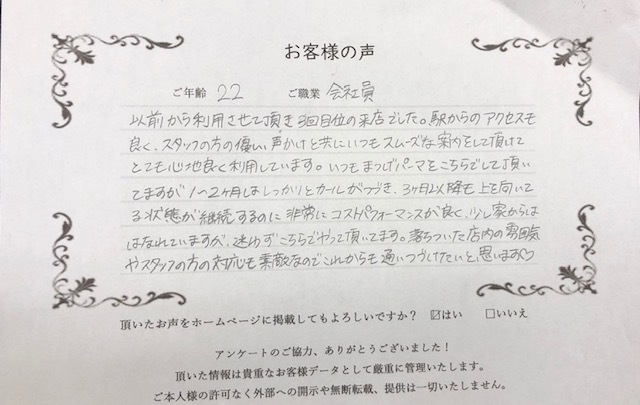 お客様の声
ご年齢 22 ご職業 会社員
以前から利用させて頂き3回目位の来店でした。駅からのアクセスも
良く、スタッフの方の優しい声かけと共にいつもスムーズな案内をして頂けて
とても心地良く利用しています。いつもまつげパーマをこちらでして頂い
てますが1〜2ヶ月はしっかりとカールがつづき、3ヶ月以降も上を向いて
る状態が継続するのに非常にコストパフォーマンスが良く、少し家からは
はなれていますが、迷わずこちらでやって頂いてます。落ちついた店内の雰囲気
やスタッフの方の対応も素敵なのでこれからも通いつづけたいと思います♡
頂いたお声をホームページに掲載してもよろしいですか？ ☑はい □いいえ
アンケートのご協力、ありがとうございました！
頂いた情報は貴重なお客様データとして厳重に管理いたします。
ご本人様の許可なく外部への開示や無断転載、提供は一切いたしません。